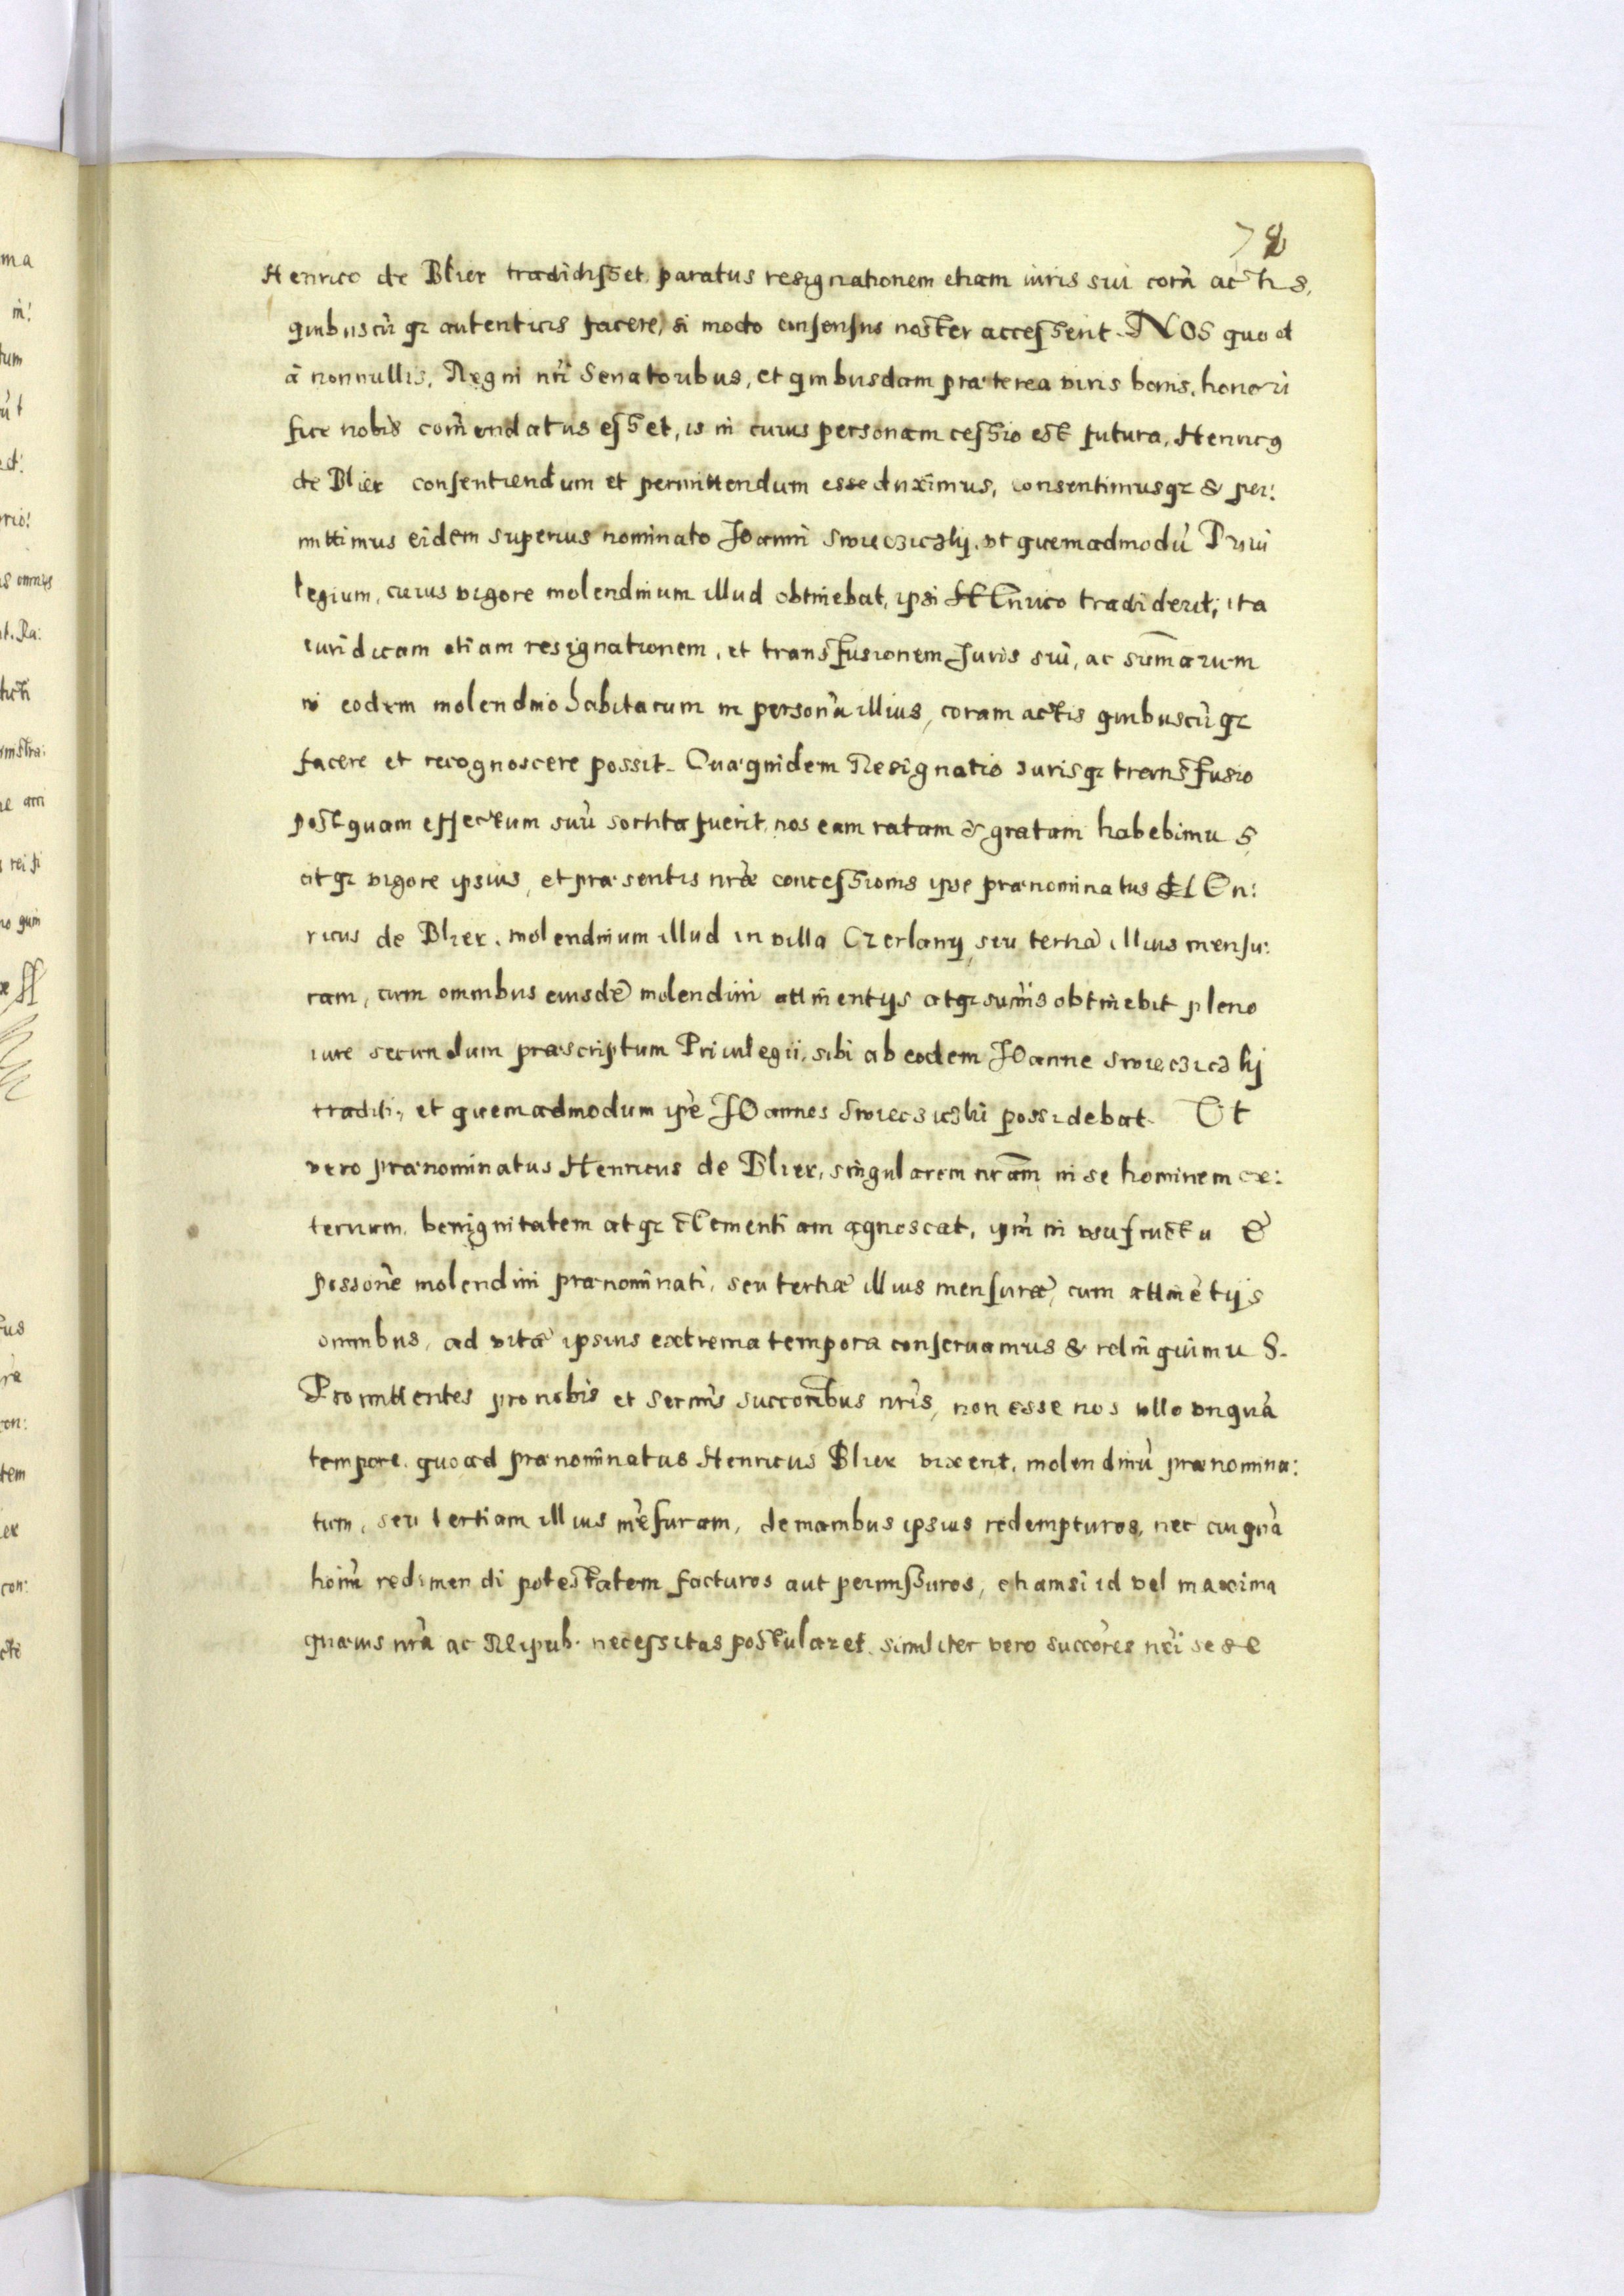 78
Henrico de Blier tradidisset, paratus resignationem etiam iuris sui corã actis,
quibuscũqꝫ autenticis facere, si modo consensus noster accesserit. NOS quod
à nonnullis, Regni nr̃i Senatoribus, et quibusdam præterea viris bonis, honori
fice nobis com̃endatus esset, is in cuius personam cessio est futura, Henricꝰ
de Blier consentiendum et permittendum esse duximus, consentimusqꝫ & per:
mittimus eidem superius nominato Ioanni Swieczickij, vt quemadmodũ Priui
legium, cuius vigore molendinum illud obtinebat, ipsi HEnrico tradiderit, ita
iuridicam etiam resignationem, et transfusionem Iuris sui, ac sum̃arum
in eodem molendino habitarum in personã illius, coram actis quibuscũqꝫ
facere et recognoscere possit. Quæquidem Resignatio iurisqꝫ transfusio
postquam effectum suũ sortita fuerit, nos eam ratam & gratam habebimus,
atqꝫ vigore ipsius, et præsentis nr̃æ concessionis ipse prænominatus HEn:
ricus de Blier, molendinum illud in villa Czerlany, seu tertiã illius mensu:
ram, cum omnibus eiusdẽ molendini attinentijs atqꝫ sum̃is obtinebit pleno
iure secundum præscriptum Priuilegii, sibi ab eodem IOanne Swieczickij
traditi, et quemadmodum ip̃e IOannes Swieczicki possidebat. Vt
vero prænominatus Henricus de Blier, singularem nr̃am in se hominem ex:
ternum, benignitatem atqꝫ clementiam agnoscat, ip̃m in vsufructu &
possõne molendini prænominati, seu tertiæ illius mensuræ, cum attinẽtijs
omnibus, ad vitæ ipsius extrema tempora conseruamus & relinquimus.
Promittentes pro nobis et Serm̃is succorĩbus nr̃is, non esse nos vllo vnquã
tempore, quoad prænominatus Henricus Blier vixerit, molendinũ prænomina:
tum, seu tertiam illius mẽsuram, de manibus ipsius redempturos, nec cuiquã
hoĩm redimendi potestatem facturos aut permissuros, etiamsi id vel maxima
quæuis nr̃a ac Reipub. necessitas postularet. similiter vero succõres nr̃i sese